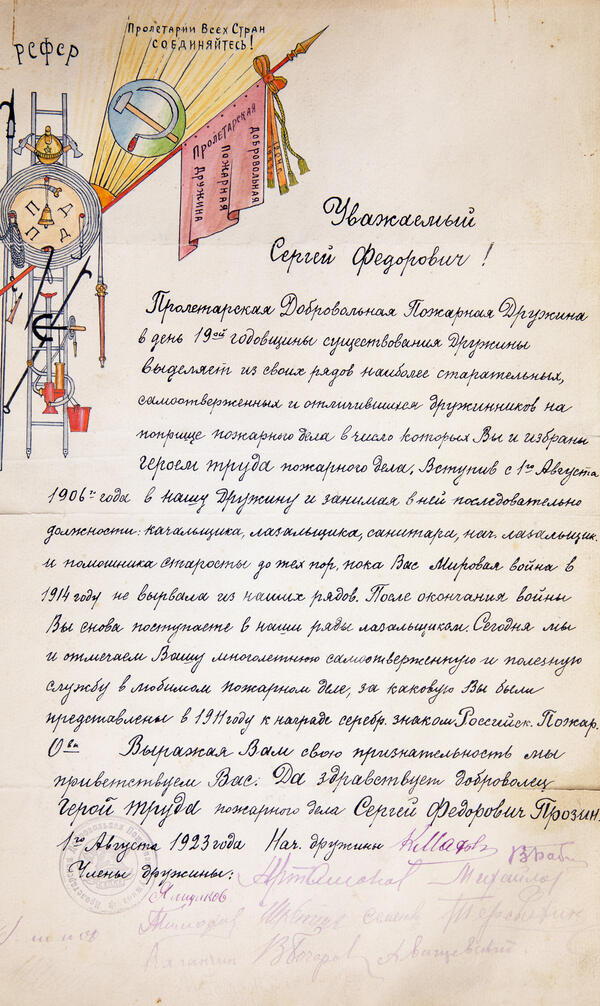 РСФСР
Пролетарии Всех Стран
СОЕДИНЯЙТЕСЬ!
Пролетарская
Добровольная
Пожарная
Дружина
П Д
П Д
Уважаемый
Сергей Федорович!
Пролетарская Добровольная Пожарная Дружина
в день 19ой годовщины существования Дружины
выделяет из своих рядов наиболее старательных,
самоотверженных и отличившихся дружинников на
поприще пожарного дела в число которых Вы и избраны
героем труда пожарного дела. Вступив с 1го Августа
1906г года в нашу Дружину и занимая в ней последовательно
должности: качальщика, лазальщика, санитара, нач. лазальщик.
и помошника старосты до тех пор, пока Вас Мировая война в
1914 году не вырвала из наших рядов. После окончания войны
Вы снова поступаете в наши ряды лазальщиком. Сегодня мы
и отмечаем Вашу многолетнюю самоотверженную и полезную
службу в любимом пожарном деле, за каковую Вы были
представлены в 1911 году к награде серебр. знаком Российск. Пожар.
О-ва Выражая Вам свою признательность мы
приветствуем Вас. Да здравствует доброволец
Герой труда пожарного дела Сергей Федорович Прозин.
1го Августа 1923 года Нач. дружины
Члены дружины:
Михайлов